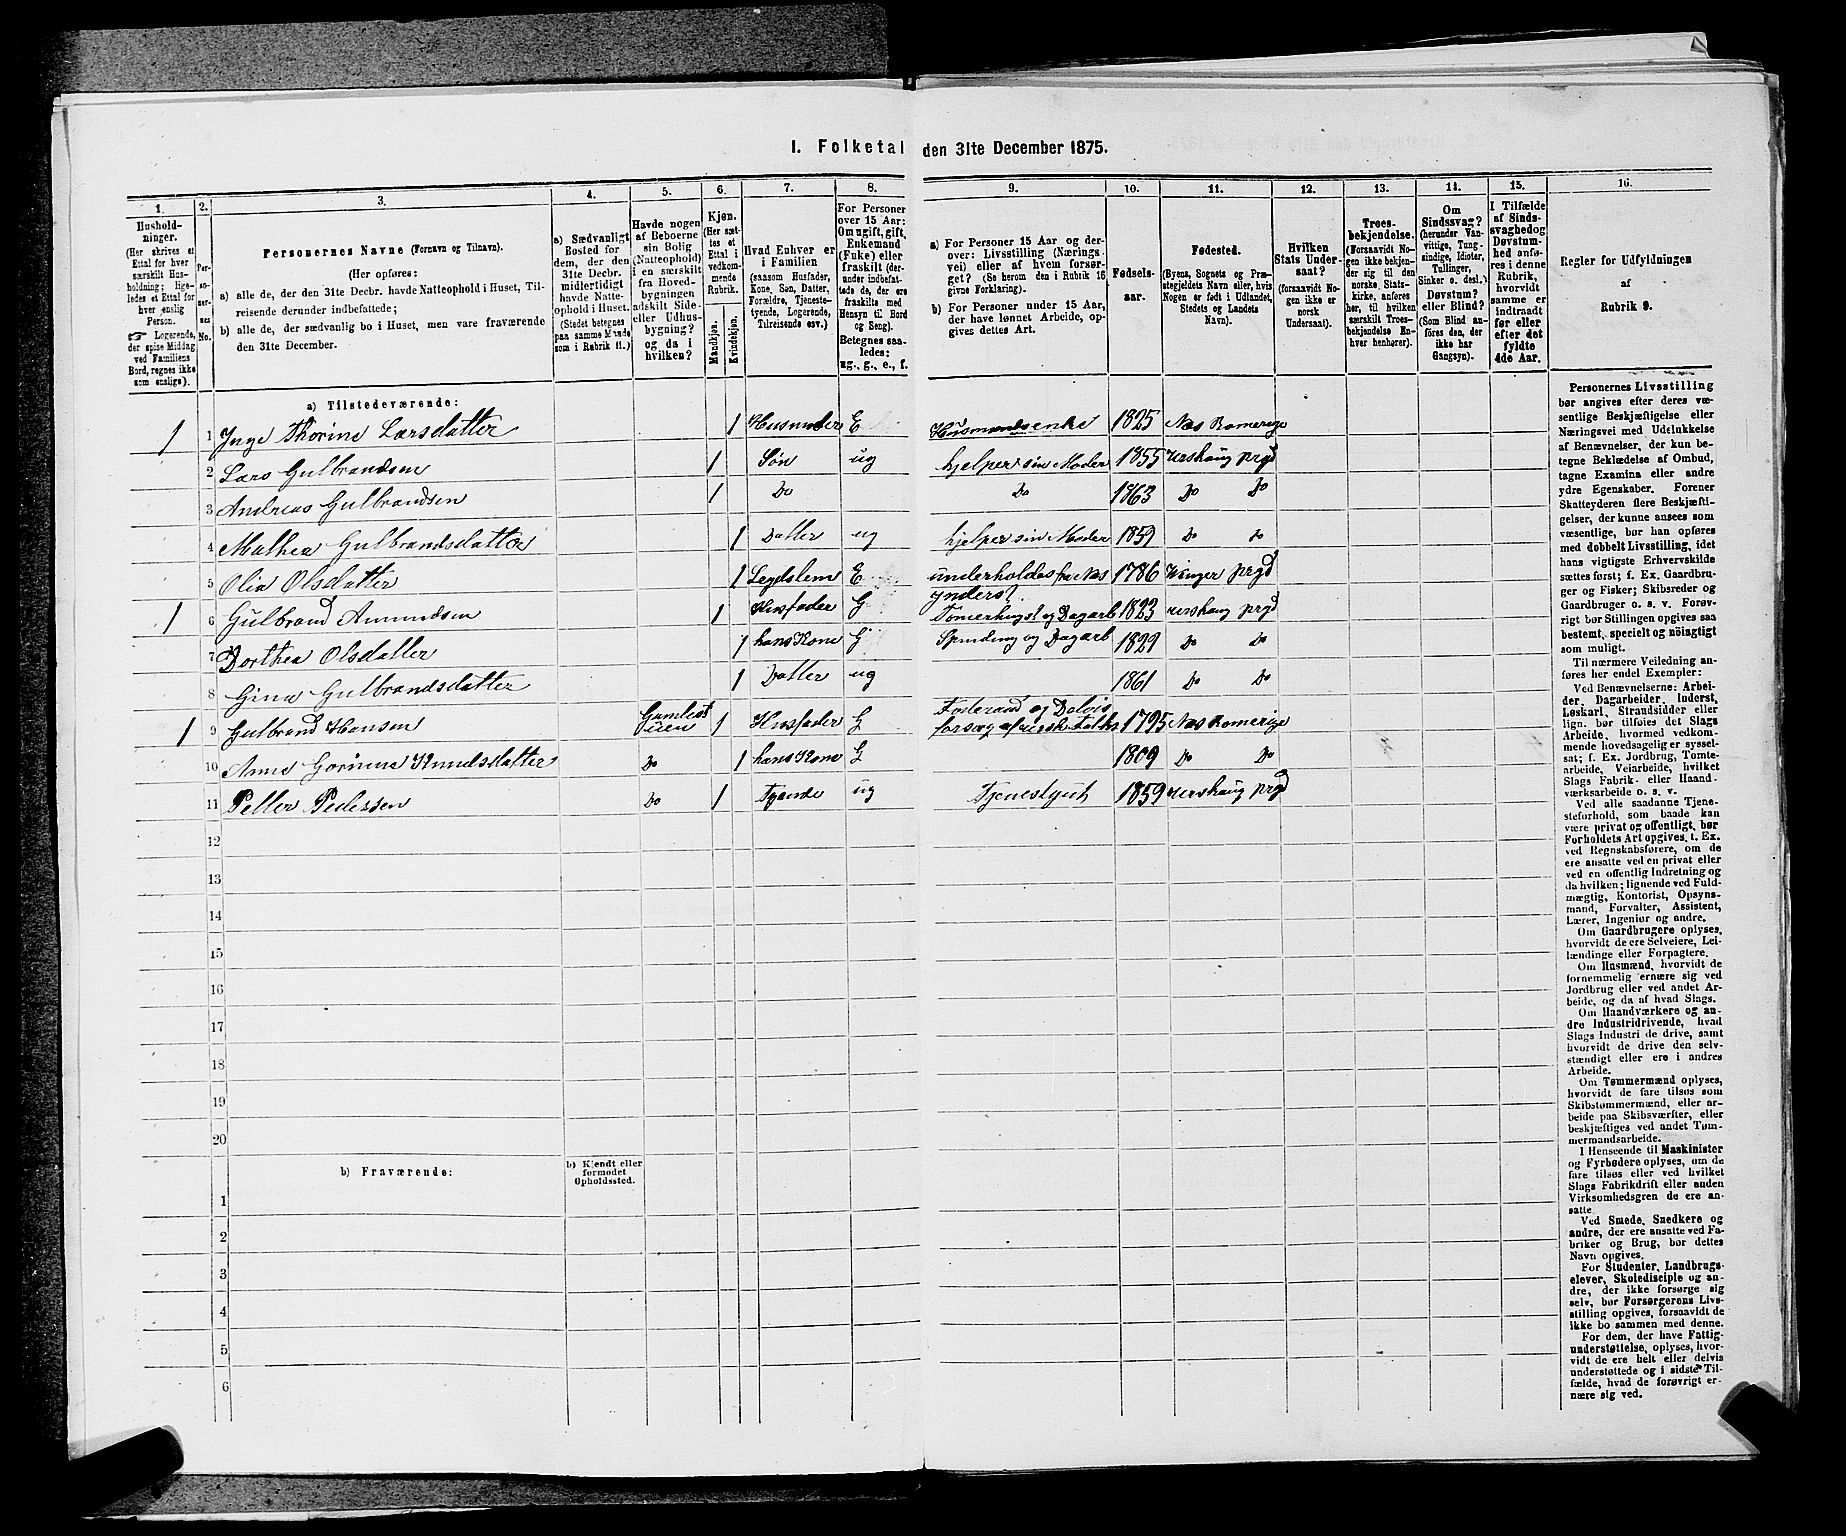 I. Folketal den 31te December 1875.
1. 2. 3. 4. 5. 6. 7. 8. 9. 10. 11. 12. 13. 14. 15. 16.
Hushold-
ninger.
(Her skrives et
Ettal for hver
særskilt Hus-
holdning; lige-
ledes et Ettal for
hver enslig
Person.
☞ Logerende,
der spise Middag
ved Familiens
Bord, regnes ikke
som enslige).
Per-
so-
ner-
nes
No.
Personernes Navne (Fornavn og Tilnavn).
(Her opføres:
a) alle de, der den 31te Decbr. havde Natteophold i Huset, Til-
reisende derunder indbefattede;
b) alle de, der sædvanlig bo i Huset, men vare fraværende
den 31te December.
a) Sædvanligt
Bosted for
dem, der den
31te Decbr.
midlertidigt
havde Natte-
ophold i Huset.
(Stedet betegnes
paa samme Maade
som i Rubrik 11.)
Havde nogen
af Beboerne
sin Bolig
(Natteophold)
i en særskilt
fra Hoved-
bygningen
adskilt Side-
eller Udhus-
bygning?
og da i
hvilken?
Kjøn.
(Her sæt-
tes et
Ettal i
vedkom-
mende
Rubrik.
Mandkjøn.
Kvindekjøn.
Hvad Enhver er
i Familien
(saasom Husfader,
Kone, Søn, Datter,
Forældre, Tjeneste-
tyende, Logerende,
Tilreisende osv.)
For Personer
over 15 Aar:
Om ugift, gift,
Enkemand
(Fuke) eller
fraskilt (der-
under indbefat-
tede de, der ere
fraskilte med
Hensyn til Bord
og Seng).
Betegnes saa-
ledes:
ug., g., e., f.
a) For Personer 15 Aar og der-
over: Livsstilling (Nærings-
vei) eller af hvem forsør-
get? (Se herom den i Rubrik 16
givne Forklaring).
b) For Personer under 15 Aar,
der have lønnet Arbeide, op-
gives dettes Art.
Fødsels-
aar.
Fødested.
(Byens, Sognets og Præ-
stegjeldets Navn eller, hvis
Nogen er født i Udlandet,
Stedets og Landets
Navn).
Hvilken
Stats Under-
saat?
(forsaavidt No-
gen ikke er
norsk
Undersaat).
Troes-
bekjendelse.
(Forsaavidt No-
gen ikke bekjen-
der sig til den
norske Stats-
kirke, anføres
her, til hvilken
særskilt Troes-
bekjendelse En-
hver henhører).
Om
Sindssvag?
(herunder Van-
vittige, Tung-
sindige, Idioter,
Tullinger,
Sinker o. desl.)
Døvstum?
eller Blind?
(Som Blind an-
føres den, der
ikke har
Gangsyn).
I Tilfælde
af Sinds-
svaghed og
Døvstum-
hed anføres
i denne
Rubrik,
hvorvidt
samme er
indtraadt
før eller
efter det
fyldte
4de Aar.
Regler for Udfyldningen
af
Rubrik 9.
a) Tilstedeværende:
1 1 Inge Thorine Larsdatter 1 Husmoder E Husmandsenke 1825 Næs Romerige
2 Lars Gulbrandsen 1 Søn ug hjelper sin Moder 1855 Urskoug prgd
3 Andreas Gulbrandsen 1 Do Do 1863 Do Do
4 Mathea Gulbrandsdatter 1 Datter ug hjelper sin Moder 1859 Do Do
5 Olia Olsdatter 1 Legdslem E underholdes fra Næs 1786 Vinger prgd
1 6 Gulbrand Amundsen 1 Husfader G ynderst. Tømerhugst og Dagarb 1823 Urskoug prgd
7 Dorthea Olsdatter 1 hans Kone G Spinding og Dagarb 1829 Do Do
8 Gina Gulbrandsdatter 1 Datter ug 1861 Do Do
1 9 Gulbrand Hansen 1 Husfader G Føderaad og Delvis 1795 Næs Romerige
10 Anne Knudsdatter Do 1 hans Kone G 1809 Do Do
11 Petter Pedersen Do 1 Tyende ug Tjenestgut 1859 Urskoug prgd
12
13
14
15
16
17
18
19
20
b) Fraværende:
b) Kjendt eller
formodet
Opholdssted.
1
2
3
4
5
6
Personernes Livsstilling
bør angives efter deres væ-
sentlige Beskjæftigelse eller
Næringsvei med Udelukkelse
af Benævnelser, der kun be-
tegne Beklædelse af Ombud,
tagne Examina eller andre
ydre Egenskaber. Forener
Skatteyderen flere Beskjæfti-
gelser, der kunne ansees som
væsentlige, bør han opføres
med dobbelt Livsstilling, idet
hans vigtigste Erhvervskilde
sættes først; f. Ex. Gaardbru-
ger og Fisker; Skibsreder og
Gaardbruger o. s. v. Forøv-
rigt bør Stillingen opgives saa
bestemt, specielt og nöiagtigt
som muligt.
Til nærmere Veiledning an-
føres her endel Exempler:
Ved Benævnelserne: Arbei-
der, Dagarbeider, Inderst,
Løskarl, Strandsidder eller
lign. bør tilføies det Slags
Arbeide, hvormed vedkom-
mende hovedsagelig er syssel-
sat; f. Ex. Jordbrug, Tomte-
arbeide, Veiarbeide, hvilket
Slags Fabrik- eller Haand-
værksarbeide o. s. v.
Ved alle saadanne Tjene-
steforhold, som baade kan
være privat og offentligt, bør
Forholdets Art opgives, t. Ex.
ved Regnskabsførere, om de
ere ansatte ved en privat eller
ved en offentlig Indretning og
da hvilken; lignende ved Fuld-
mægtig, Kontorist, Opsyns-
mand, Forvalter, Assistent,
Lærer, Ingeniør og andre.
Om Gaardbrugere oplyses,
hvorvidt de ere Selveiere, Lei-
lændinge eller Forpagtere.
Om Husmænd, hvorvidt de
fornemmelig ernære sig ved
Jordbrug eller ved andet Ar-
beide, og da af hvad Slags.
Om Haandværkere og an-
dre Industridrivende, hvad
Slags Industri de drive, samt
hvorvidt de drive den selv-
stændigt eller ere i andres
Arbeide.
Om Tømmermænd oplyses,
hvorvidt de fare tilsøs som
Skibstømmermænd, eller ar-
beide paa Skibsværfter, eller
beskjæftiges ved andet Tøm-
mermandsarbeide.
I Henseende til Maskinister
og Fyrbødere oplyses, om de
fare tilsøs eller ved hvilket
Slags Fabrikdrift eller anden
Virksomhedsgren de ere an-
satte.
Ved Smede, Snedkere og
andre, der ere ansatte ved Fa-
briker og Brug, bør dettes
Navn opgives.
For Studenter, Landbrugs-
elever, Skoledisciple og an-
dre, der ikke forsørge sig
selv, bør Forsørgerens Livs-
stilling opgives, forsaavidt de
ikke bo sammen med denne.
For dem, der have Fattig-
understøttelse, oplyses, hvor-
vidt de ere helt eller delvis
understøttede og i sidste Til-
fælde, hvad de forøvrigt er-
nære sig ved.